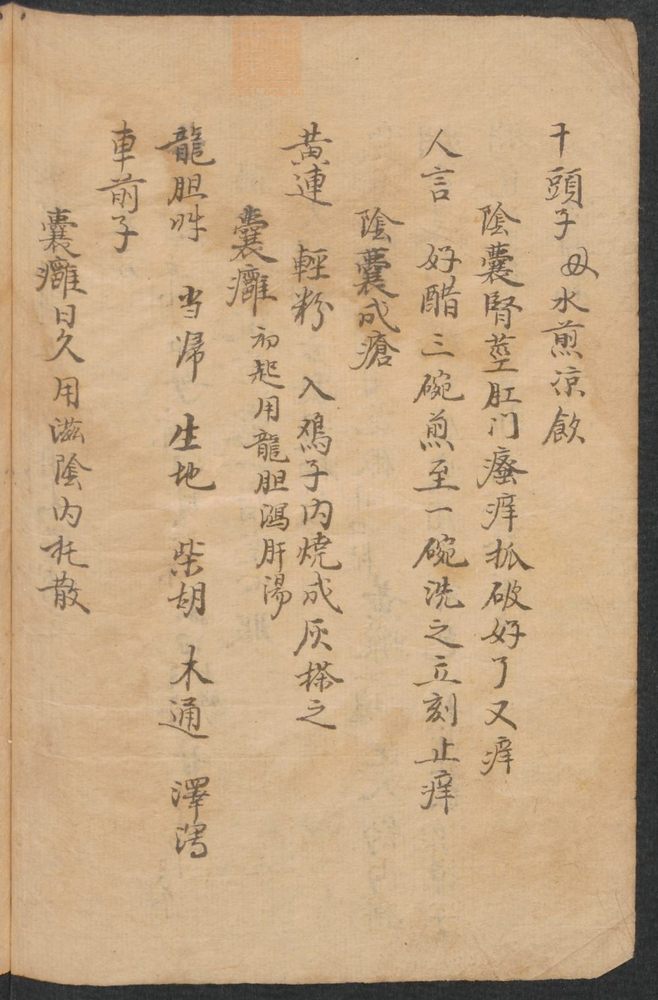 千頭子 母水煎凉飲
陰囊腎莖肛门瘙痒抓破好了又痒
人言 好醋三碗煎至一碗洗之立刻止痒
陰囊成瘡
黄連 輕粉 入鳮子内燒成灰搽之
囊癰 初起用龍胆瀉肝湯
龍胆 当归 生地 柴胡 木通 澤瀉
車前子
囊癰日久用滋陰内托散